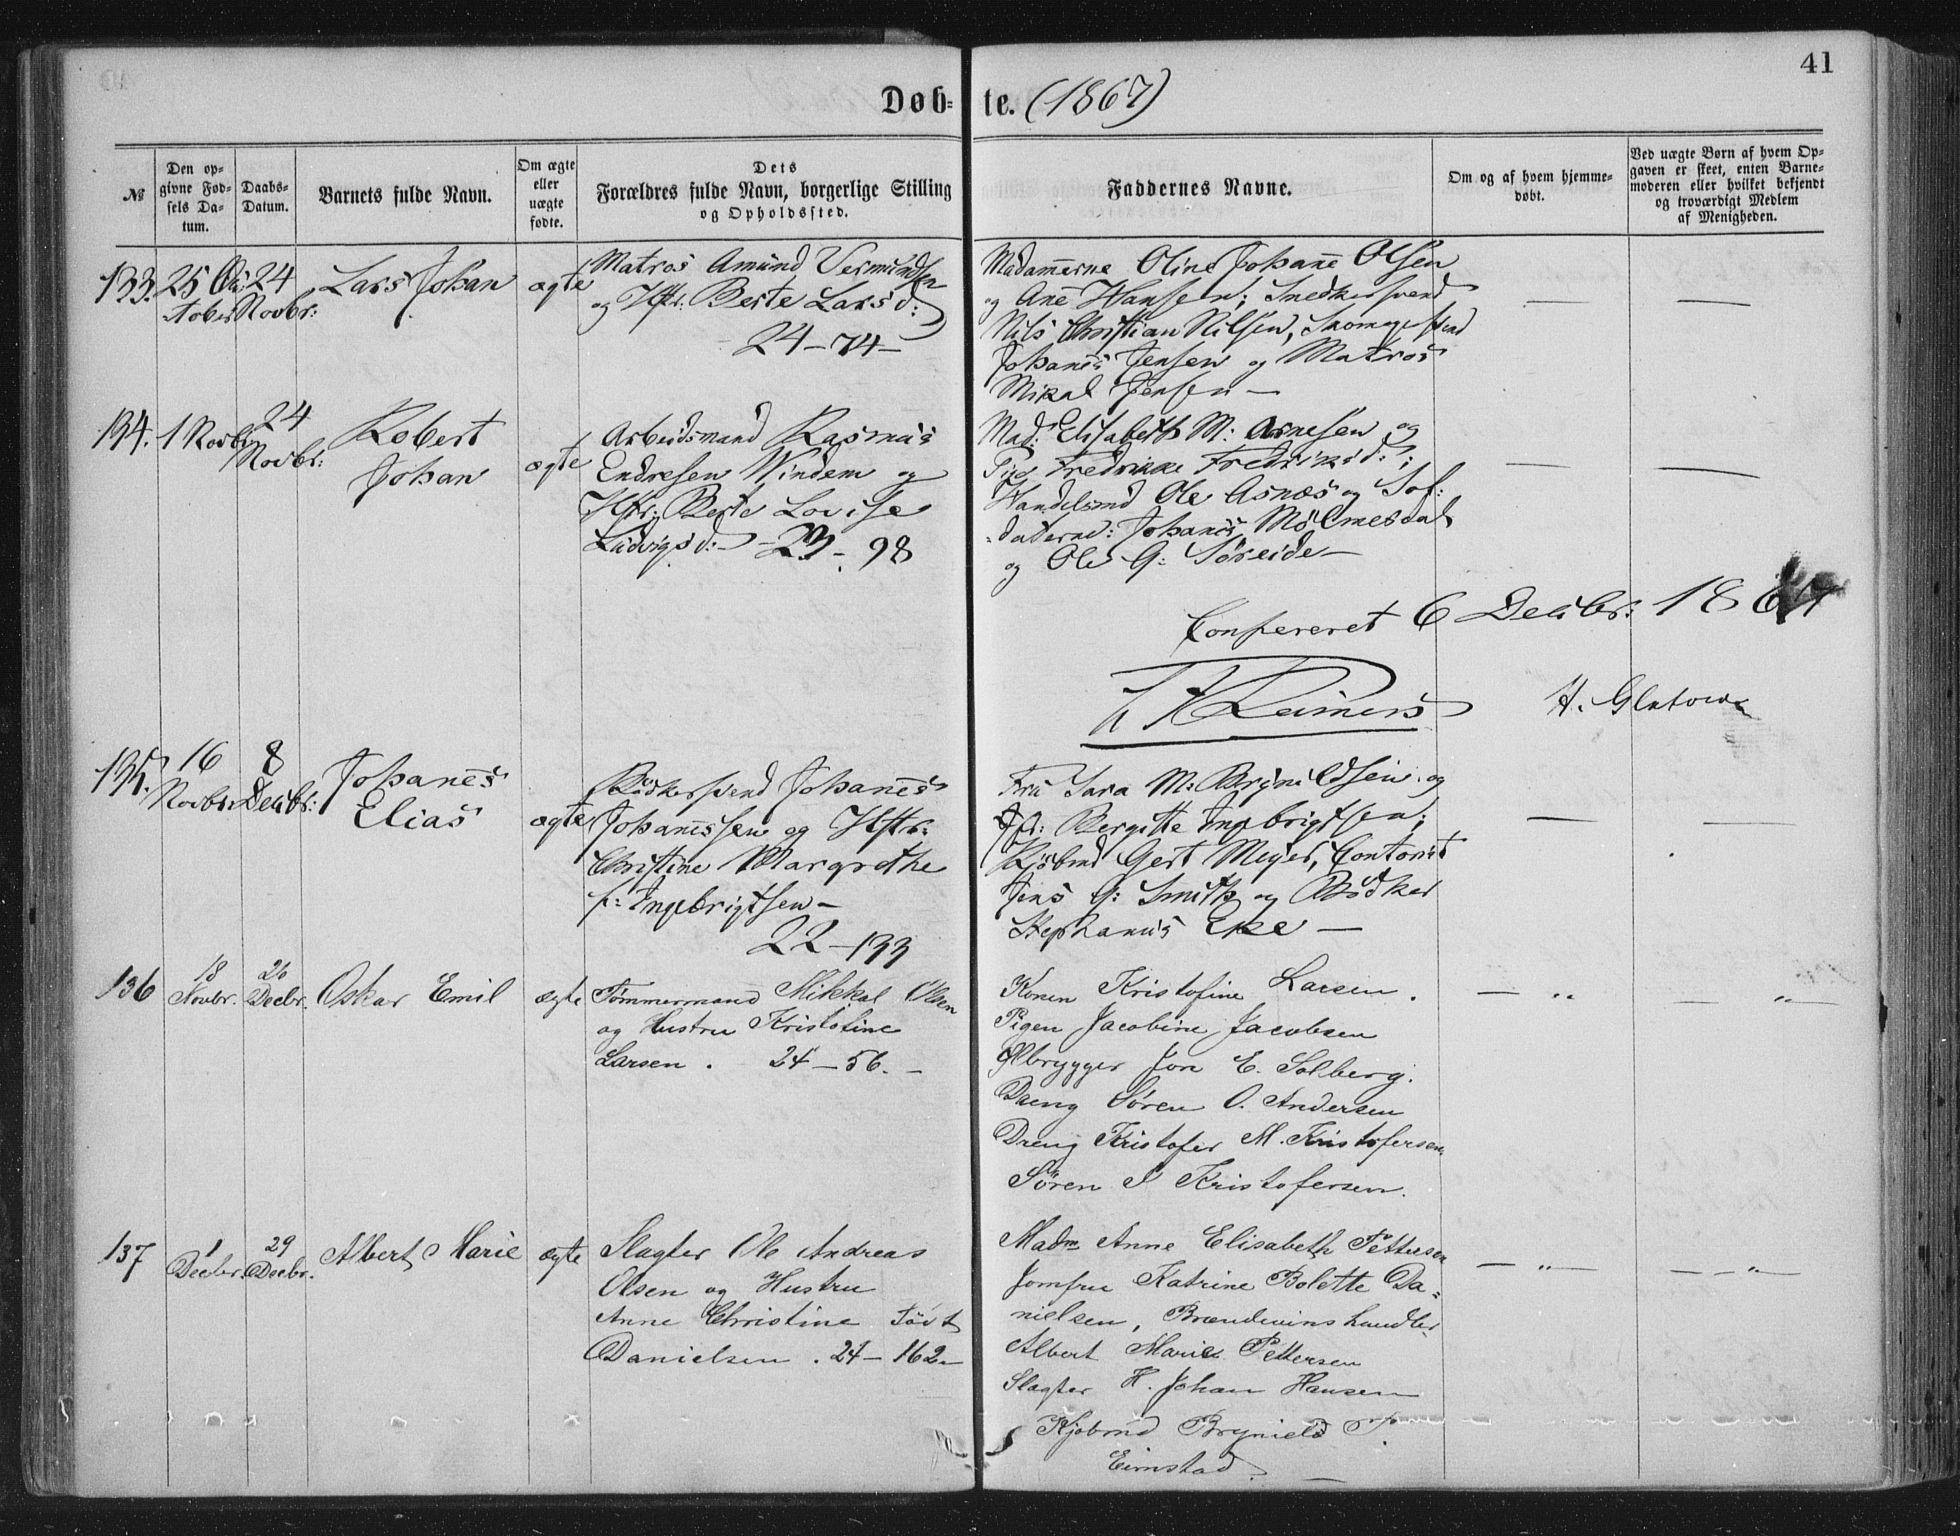 41
Døb- te. (1867)
№
Den op-
givne Fød-
sels Da-
tum.
Daabs-
Datum.
Barnets fulde Navn.
Om ægte
eller
uægte
fødte.
Dets
Forældres fulde Navn, borgerlige Stilling
og Opholdssted.
Faddernes Navne.
Om og af hvem hjemme-
døbt.
Ved uægte Børn af hvem Op-
gaven er skeet, enten Barne-
moderen eller hvilket bekjendt
og troværdigt Medlem
af Menigheden.
133. 25 Oc-
tober
24
Novbr:
Lars Johan
ægte
Matros Amund Vermundsen
og Hstr: Berte Larsd:
24-74-
Madamerne Oline Johane Olsen
og Ane Hansen; Snedkersvend
Nils Christian Nilsen, Skomagersvend
Johanes Jensen og Matros
Mikal Jensen —
134. 1 Novbr
24
Novbr:
Robert
Johan
ægte
Arbeidsmand Rasmus
Endresen Vindem og
Hstr: Berte Lovise
Ludvigsd: - 23-98
Mad: Elisabeth M: Arnesen og
Pige Fredrikke Fredriksd:;
Handelsmd Ole Asnæs og Sol-
daterne: Johanes Mølmesdal
og Ole G: Søreide —
Confereret 6 Decbr: 1867
Reimers
135. 16
Novbr:
8
Decbr:
Johanes
Elias
ægte
Bødkersvend Johanes
Johanessen og Hstr:
Christine Margrethe
f: Ingebrigtsen —
22-133
Fru Sara M: Brynildsen og
Jfr: Bergitte Ingebrigtsen;
Kjøbmd Gert Meyer, Contorist
Jens G: Smith og Bødker
Stephanus Eke —
136
18
Novbr.
26
Decbr.
Oskar Emil
ægte
Tømmermand Mikkal Olsen
og Hustru Kristofine
Larsen . 24-56.-
Konen Kristofine Larsen .
Pigen Jacobine Jacobsen
Ølbrygger Jon E. Solberg.
Dreng Søren O. Andersen
Dreng Kristofer M. Kristofersen
Søren I Kristofersen.
— „ — „ —
137
1
Decbr.
29
Decbr.
Albert Marie
ægte
Slagter Ole Andreas
Olsen og Hustru
Anne Christine født
Danielsen . 24-162-
Madm Anne Elisabeth Pettersen
Jomfru Katrine Bolette Da-
nielsen, Brændevinshandler
Albert Marie Pettersen
Slagter H. Johan Hansen
Kjøbmd Brynield
Eimstad. —
— „ — — „ —